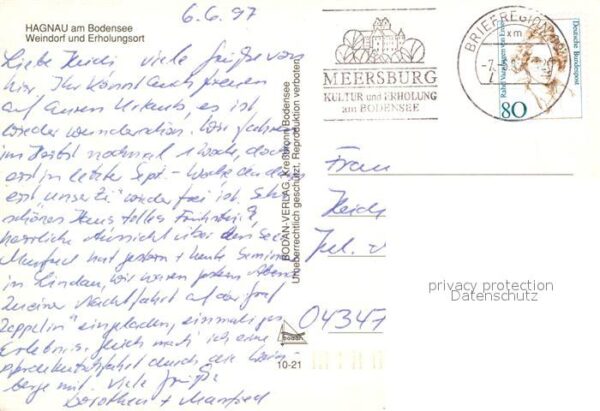 6.6.97
HAGNAU am Bodensee
Weindorf und Erholungsort
Liebe Heidi viele Grüße von
hier, Ihr könnt Euch freuen
auf Euren Urlaub, es ist
wieder wunderschön. Wir fahren
im Herbst nochmal 1 Woche, doch
erst in letzter Sept - Woche da
erst "unser Zi" wieder frei ist. Sehr
schönes Haus tolles Frühstück
herrliche Aussicht über den See
Manfred hat gestern + heute Seminar
in Lindau, wir waren gestern Abend
zu einer Nachtfahrt auf der "Graf
Zeppelin" eingeladen, einmaliges
Erlebnis. Gleich mach ich eine
durch die Wein-
berge mit. Viele Grüße
Dorothea + Manfred
BODAN-VERLAG, Kreßbronn/Bodensee
Urheberrechtlich geschützt, Reproduktion verboten
MEERSBURG
KULTUR und ERHOLUNG
am BODENSEE
BRIEFREGION
xm
Deutsche Bundespost
Rahel Varnhagen von Ense
80
Frau
Heidi
04347
bodan
10-21
privacy protection
Datenschutz